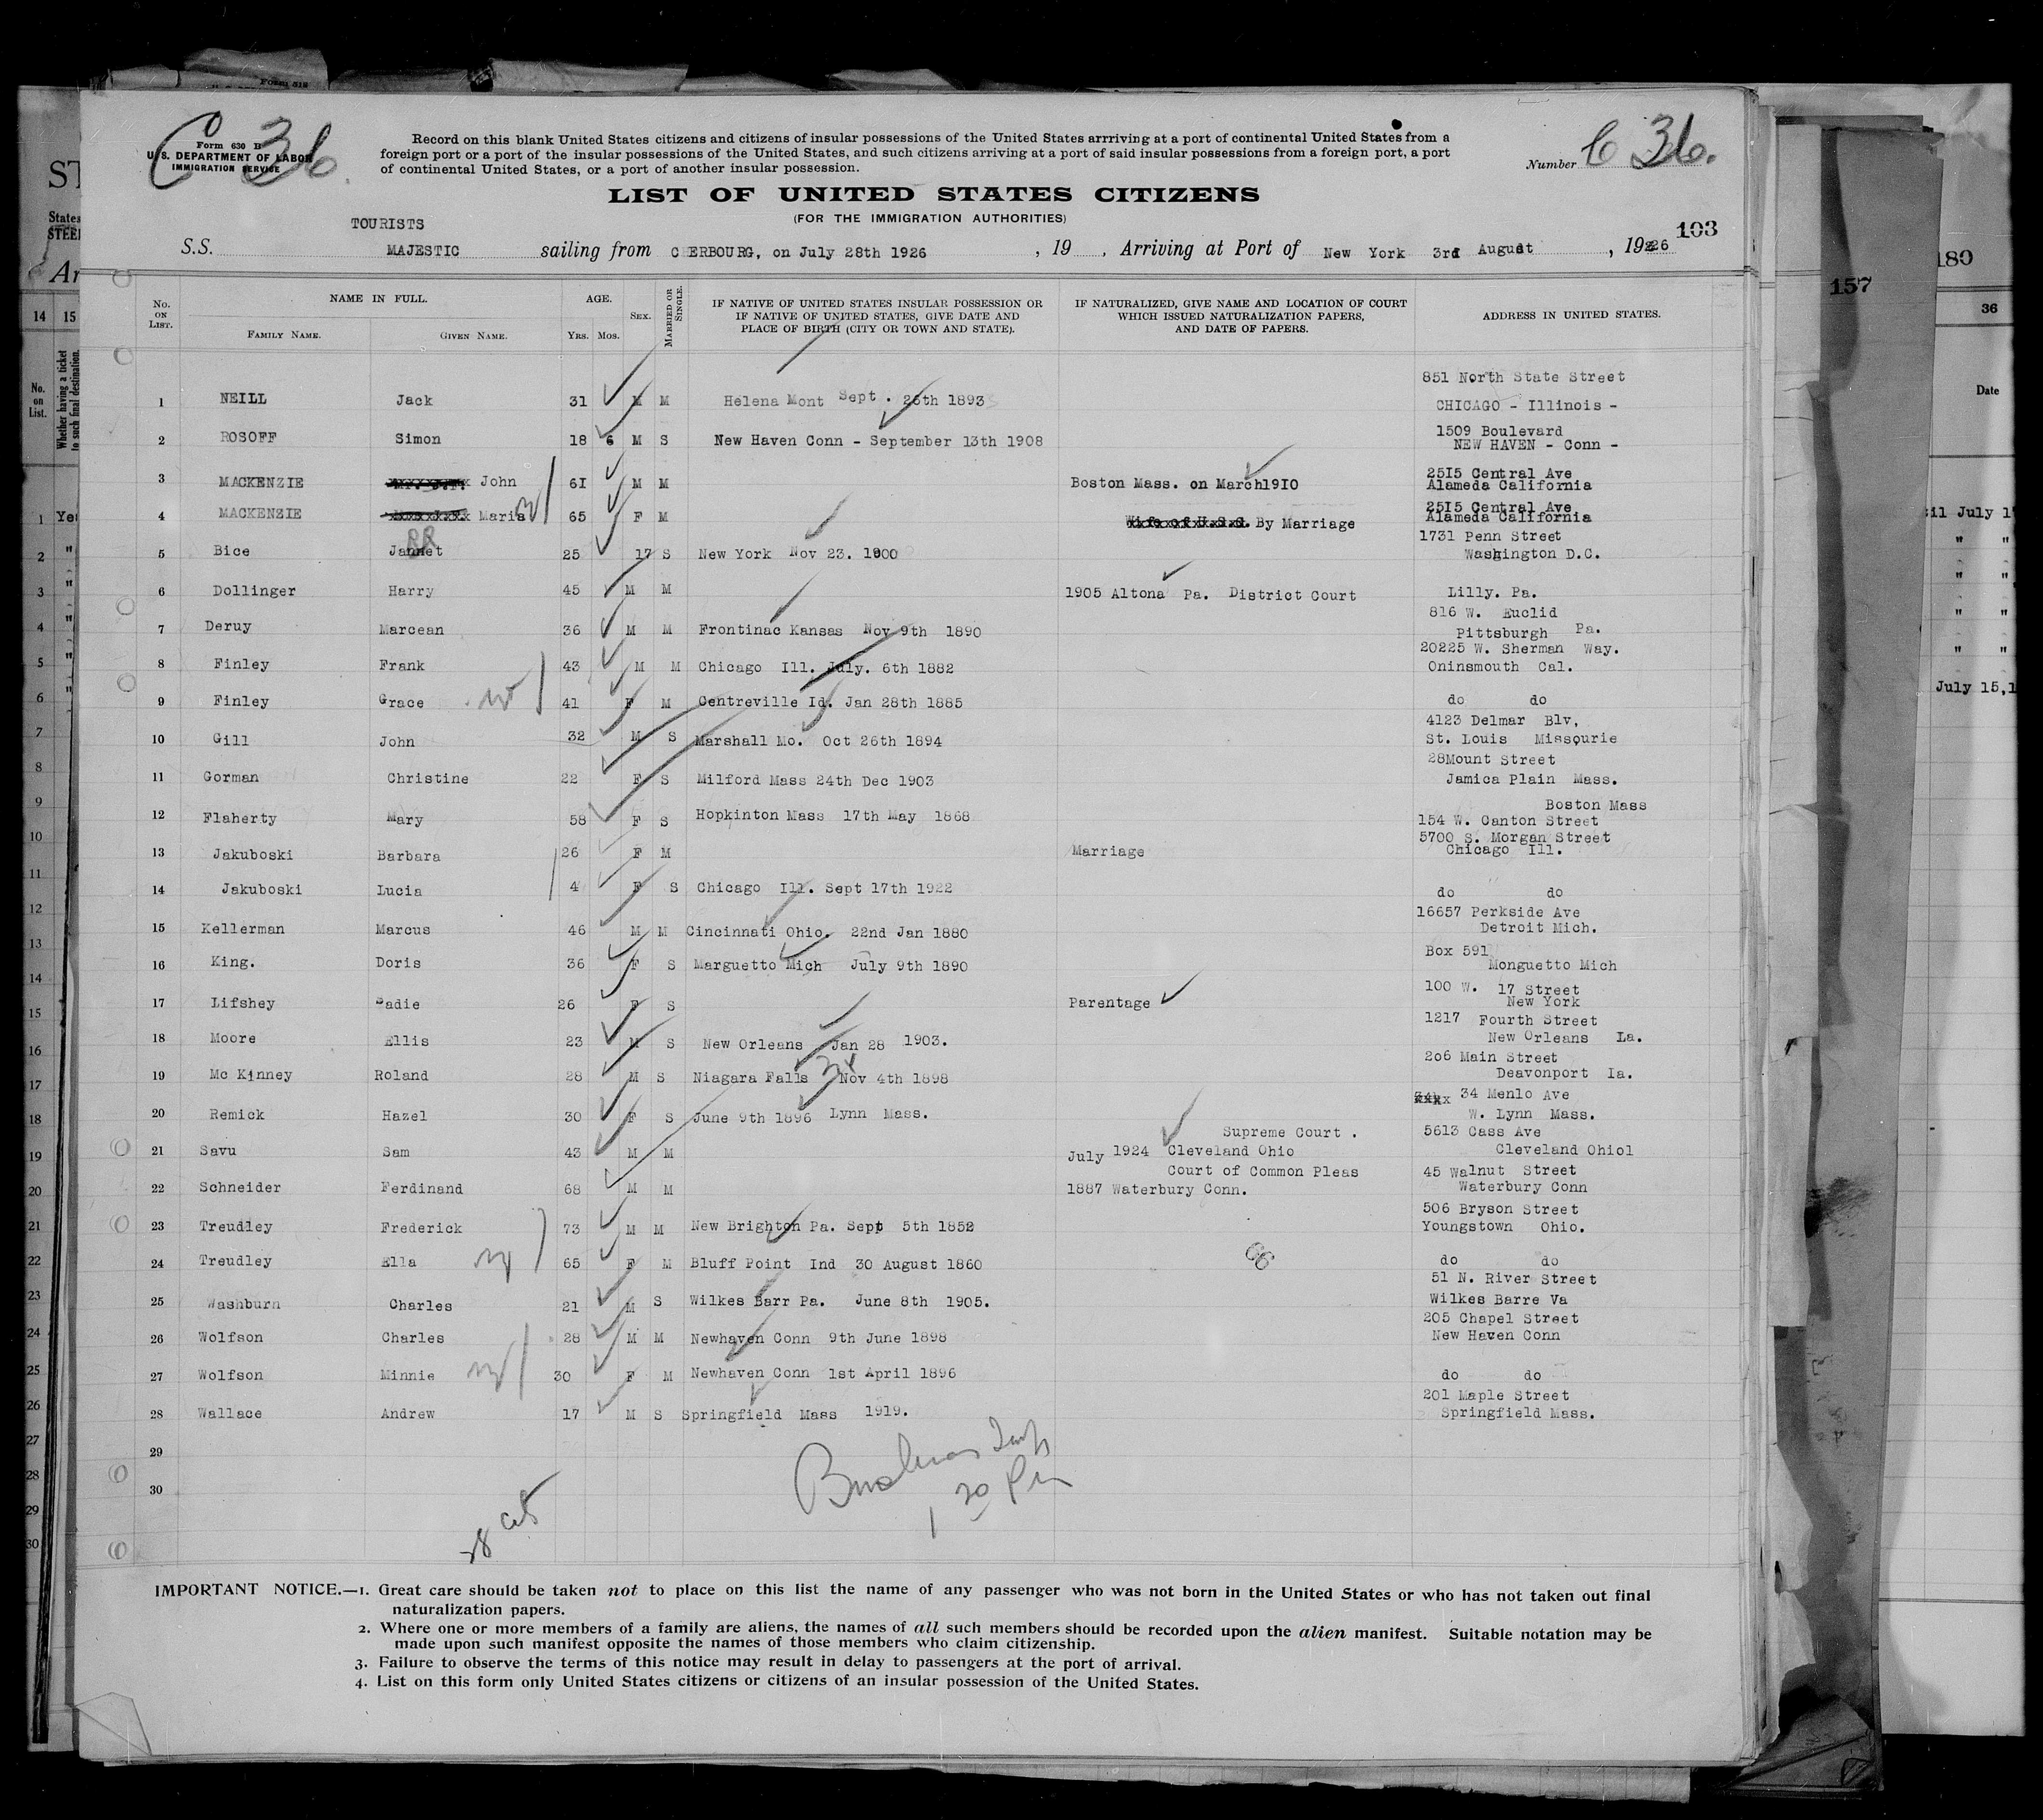 Form 630 B
U. S. DEPARTMENT OF LABOR
IMMIGRATION SERVICE
C 36
Record on this blank United States citizens and citizens of insular possessions of the United States arrriving at a port of continental United States from a
foreign port or a port of the insular possessions of the United States, and such citizens arriving at a port of said insular possessions from a foreign port, a port
of continental United States, or a port of another insular possession.
Number C 36.
LIST OF UNITED STATES CITIZENS
(FOR THE IMMIGRATION AUTHORITIES)
103
TOURISTS
S.S. MAJESTIC sailing from CHERBOURG, on July 28th 1926 , 19 , Arriving at Port of New York 3rd August , 1926
No. ON LIST. NAME IN FULL. AGE. SEX. MARRIED OR SINGLE. IF NATIVE OF UNITED STATES INSULAR POSSESSION OR IF NATIVE OF UNITED STATES, GIVE DATE AND PLACE OF BIRTH (CITY OR TOWN AND STATE). IF NATURALIZED, GIVE NAME AND LOCATION OF COURT WHICH ISSUED NATURALIZATION PAPERS, AND DATE OF PAPERS. ADDRESS IN UNITED STATES.
FAMILY NAME. GIVEN NAME. YRS. MOS.
1 NEILL Jack 31 M M Helena Mont Sept. 26th 1893 851 North State Street
CHICAGO - Illinois -
2 ROSOFF Simon 18 6 M S New Haven Conn - September 13th 1908 1509 Boulevard
NEW HAVEN - Conn -
3 MACKENZIE John 61 M M Boston Mass. on March1910 2515 Central Ave
Alameda California
4 MACKENZIE Maria 65 F M Wife of U.S.C. By Marriage 2515 Central Ave
Alameda California
5 Bice Jannet 25 17 S New York Nov 23. 1900 1731 Penn Street
Washington D.C.
6 Dollinger Harry 45 M M 1905 Altona Pa. District Court Lilly. Pa.
7 Deruy Marcean 36 M M Frontinac Kansas Nov 9th 1890 816 W. Euclid
Pittsburgh Pa.
8 Finley Frank 43 M M Chicago Ill. July. 6th 1882 20225 W. Sherman Way.
Oninsmouth Cal.
9 Finley Grace 41 F M Centreville Id. Jan 28th 1885 do do
10 Gill John 32 M S Marshall Mo. Oct 26th 1894 4123 Delmar Blv,
St. Louis Missourie
11 Gorman Christine 22 F S Milford Mass 24th Dec 1903 28Mount Street
Jamica Plain Mass.
12 Flaherty Mary 58 F S Hopkinton Mass 17th May 1868 Boston Mass
154 W. Canton Street
13 Jakuboski Barbara 26 F M Marriage 5700 S. Morgan Street
Chicago Ill.
14 Jakuboski Lucia 4 F S Chicago Ill. Sept 17th 1922 do do
15 Kellerman Marcus 46 M M Cincinnati Ohio. 22nd Jan 1880 16657 Perkside Ave
Detroit Mich.
16 King. Doris 36 F S Marguetto Mich July 9th 1890 Box 591
Monguetto Mich
17 Lifshey Sadie 26 F S Parentage 100 W. 17 Street
New York
18 Moore Ellis 23 M S New Orleans Jan 28 1903. 1217 Fourth Street
New Orleans La.
19 Mc Kinney Roland 28 M S Niagara Falls Nov 4th 1898 206 Main Street
Deavonport Ia.
20 Remick Hazel 30 F S June 9th 1896 Lynn Mass. 34 Menlo Ave
W. Lynn Mass.
21 Savu Sam 43 M M July 1924 Supreme Court . Cleveland Ohio 5613 Cass Ave
Cleveland Ohiol
22 Schneider Ferdinand 68 M M Court of Common Pleas 1887 Waterbury Conn. 45 Walnut Street
Waterbury Conn
23 Treudley Frederick 73 M M New Brighton Pa. Sept 5th 1852 506 Bryson Street
Youngstown Ohio.
24 Treudley Ella 65 F M Bluff Point Ind 30 August 1860 do do
25 Washburn Charles 21 M S Wilkes Barr Pa. June 8th 1905. 51 N. River Street
Wilkes Barre Va
26 Wolfson Charles 28 M M Newhaven Conn 9th June 1898 205 Chapel Street
New Haven Conn
27 Wolfson Minnie 30 F M Newhaven Conn 1st April 1896 do do
28 Wallace Andrew 17 M S Springfield Mass 1919. 201 Maple Street
Springfield Mass.
29
30
1 20 Pm
IMPORTANT NOTICE.—1. Great care should be taken not to place on this list the name of any passenger who was not born in the United States or who has not taken out final
naturalization papers.
2. Where one or more members of a family are aliens, the names of all such members should be recorded upon the alien manifest. Suitable notation may be
made upon such manifest opposite the names of those members who claim citizenship.
3. Failure to observe the terms of this notice may result in delay to passengers at the port of arrival.
4. List on this form only United States citizens or citizens of an insular possession of the United States.
157
180
36
Date
July 15,1